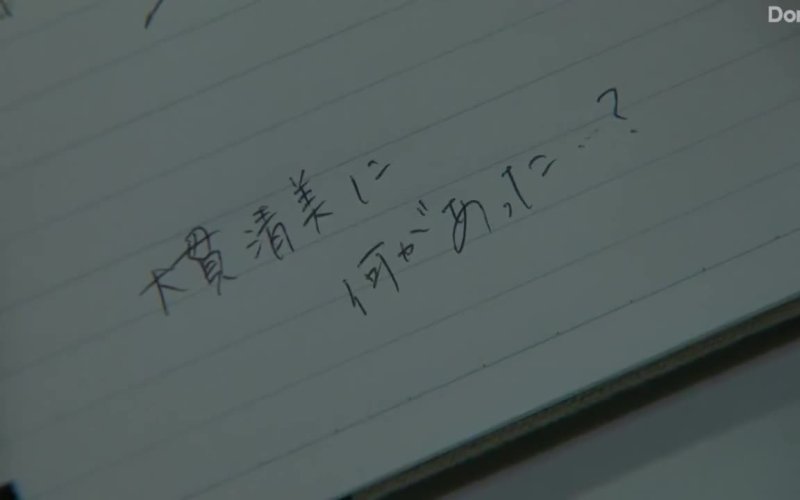 Dor
大貫清美に
何があった…?